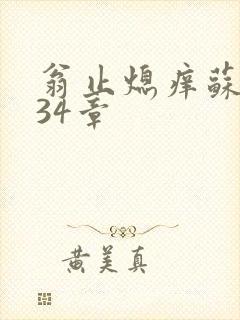 翁止熄痒蘇
34章
黄美真